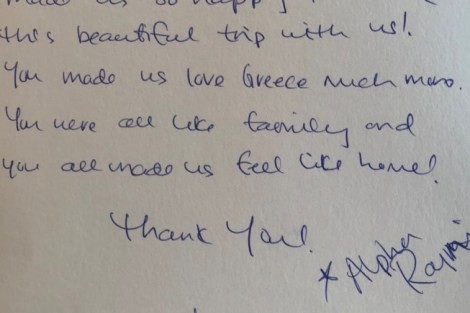 made us so happy
this beautiful trip with us!
You made us love Greece much more.
You were all like family and
you all made us feel like home!
Thank You!
* Alpha